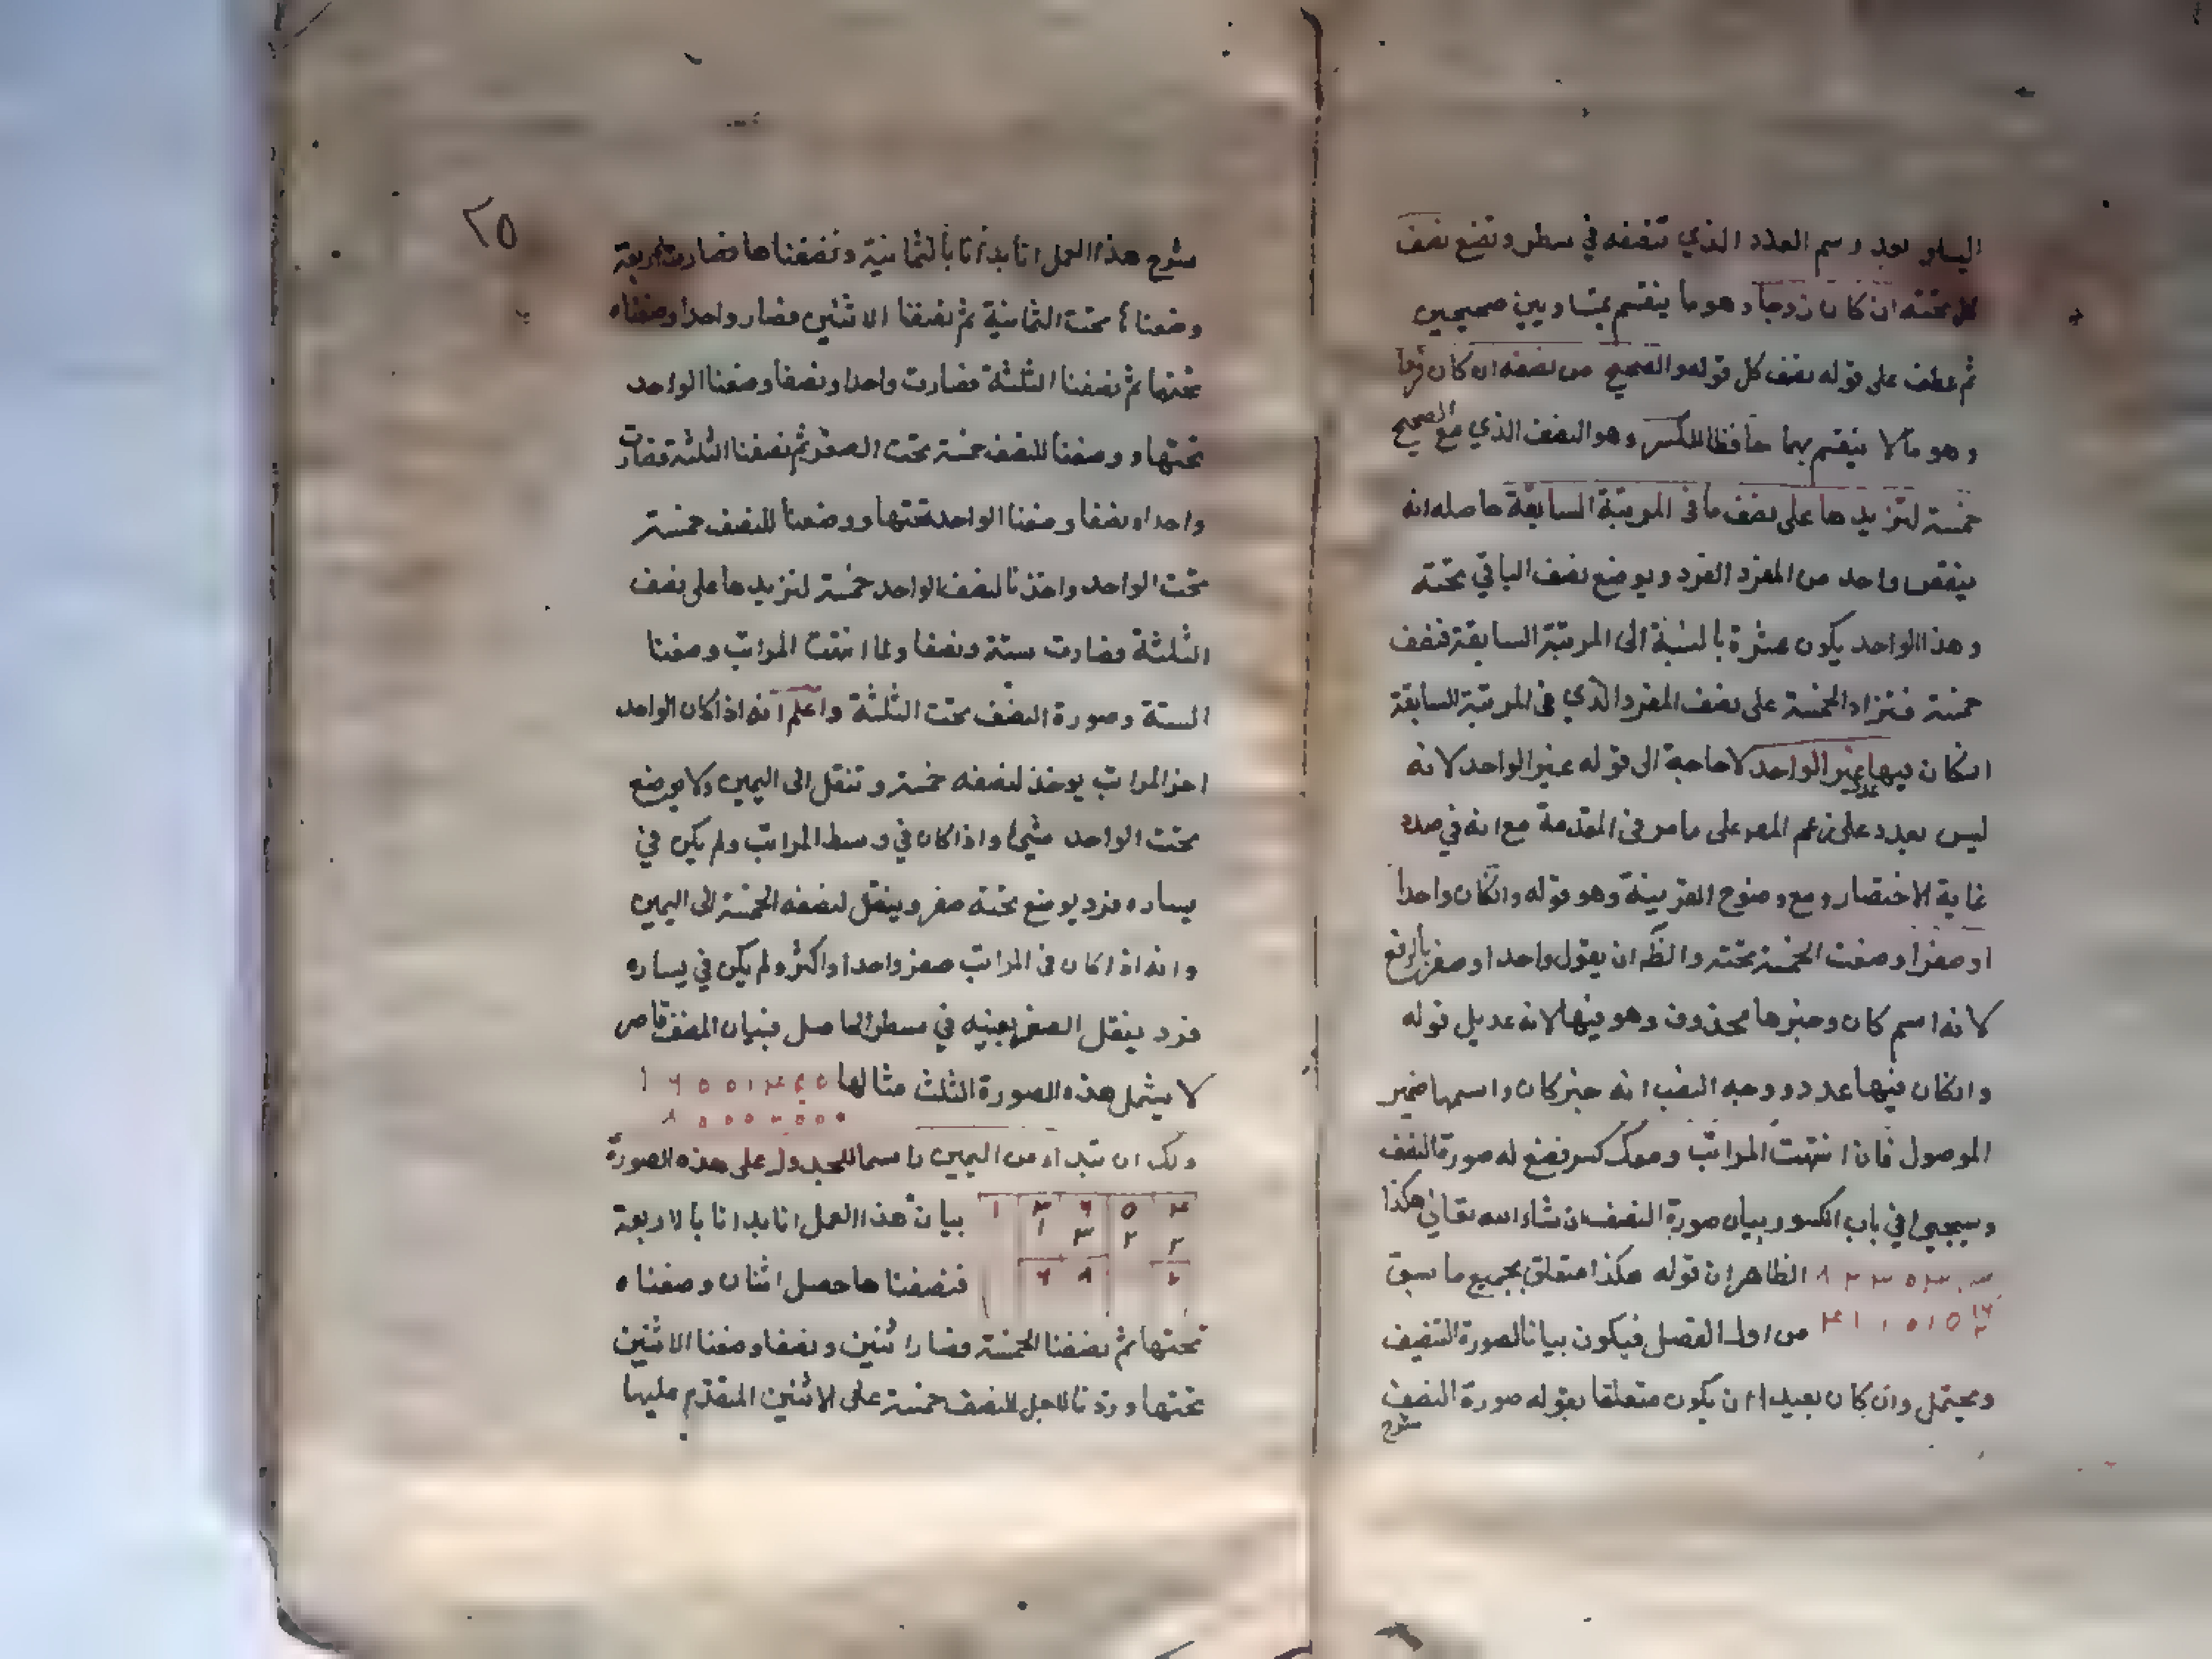 اليسار بعد رسم العدد الذي تنصفه في سطر وتضع نصف
كل تحته ان كان زوجا وهو ما ينقسم بمتساويين صحيحين
ثم عطف على قوله نصف كل قوله والصحيح من نصفه ان كان فردا
وهو ما لا ينقسم بهما حافظا للكسر وهو النصف الذي مع الصحيح
خمسة لتزيدها على نصف ما في المرتبة السابقة حاصله انه
ينقص واحد من المفرد الفرد ويوضع نصف الباقي تحته
وهذا الواحد يكون عشرة بالنسبة الى المرتبة السابقة فنصف
خمسة فتزاد الخمسة على نصف المفرد الذي في المرتبة السابقة
انكان فيها عدد غير الواحد لا حاجة الى قوله غير الواحد لانه
ليس بعدد على زعم المصر على ما مر في المقدمة مع انه في صدد
غاية الاختصار ومع وضوح القرينة وهو قوله وانكان واحدا
او صفرا وضعت الخمسة تحته والظ ان يقول واحد او صفر بالرفع
لانه اسم كان وخبرها محذوف وهو فيها لانه عديل قوله
وانكان فيها عدد ووجه النصب انه خبر كان واسمها ضمير
الموصول فاذا انتهت المراتب ومعك كسر فضع له صورة النصف
وسيجيئ في باب الكسور بيان صورة النصف ان شاء الله تعالى هكذا
الظاهر ان قوله هكذا متعلق بجميع ما سبق
من اول الفصل فيكون بيانا لصورة التنصيف
ويحتمل وان كان بعيدا ان يكون متعلقا بقوله صورة النصف
شرح
٢٥
شرح هذا العمل انا بدأنا بالثمانية ونصفناها فصارت اربعة
وضعنا ٤ تحت الثمانية ثم نصفنا الاثنين فصار واحدا وضعناه
تحتها ثم نصفنا الثلثة فصارت واحدا ونصفا وضعنا الواحد
تحتها ووضعنا للنصف خمسة تحت الصفر ثم نصفنا الثلثة فصارت
واحدا ونصفا وضعنا الواحد تحتها ووضعنا للنصف خمسة
تحت الواحد واخذنا لنصف الواحد خمسة لنزيدها على نصف
الثلثة فصارت ستة ونصفا ولما انتهت المراتب وضعنا
الستة وصورة النصف تحت الثلثة واعلم انه اذا كان الواحد
اخر المراتب يوخذ لنصفه خمسة وتنقل الى اليمين ولا يوضع
تحت الواحد شيئ واذا كان في وسط المراتب ولم يكن في
يساره فرد يوضع تحته صفر وينقل لنصفه الخمسة الى اليمين
وانه اذا كان في المراتب صفر واحد او اكثر ولم يكن في يساره
فرد ينقل الصفر بعينه في سطر الحاصل فبيان المصنف قاصر
لا يشمل هذه الصورة الثلث مثالها
ولك ان تبداء من اليمين راسما للجدول على هذه الصورة
١ ٣ ٦ ٥ ٤ بيان هذا العمل انا بدانا بالاربعة
١ ٣ ٢ ٢
٦ ٨ ٢ فنصفناها حصل اثنان وضعناه
تحتها ثم نصفنا الخمسة فصارا ثنين ونصفا وضعنا الاثنين
تحتها وزدنا لاجل النصف خمسة على الاثنين المتقدم عليها